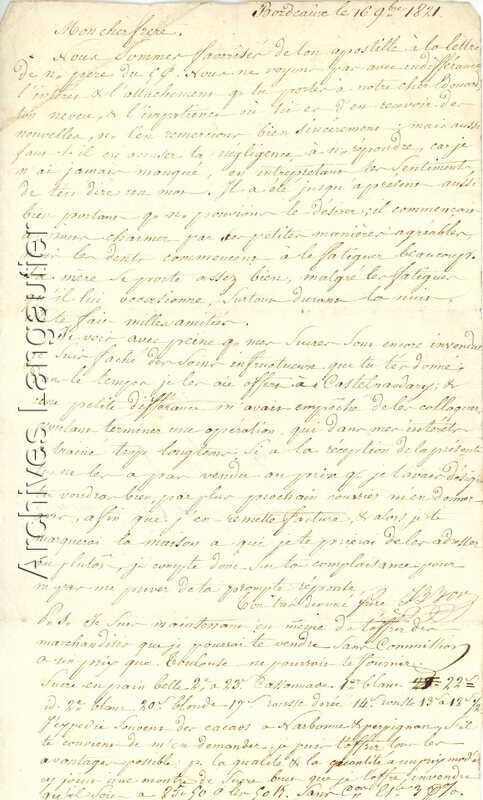 Bordeaux le 16 9bre 1821
Mon cher frère.
Nous sommes favorisés de ton apostille à la lettre
de n. père du 5 ct. Nous ne voyons pas avec indifférence
l'intérêt & l'attachement q. tu portes à notre cher Edouard
ton neveu, & l'impatience où tu es d'en recevoir des
nouvelles, n. t'en remercions bien sincèrement; mais aussi
faut-il en accuser ta négligence à n. répondre, car je
n'ai jamais manqué, en interprétant tes sentiments,
de t'en dire un mot. Il a été jusqu'a présent aussi
bien portant q. n. pouvions le désirer; il commençait
nous charmer par ses petites manières agréables
les dents commencent à le fatiguer beaucoup.
mère se porte assez bien, malgré les fatigues
il lui occasionne, surtout durant la nuit
te fait milles amitiés.
Je vois avec peine q. mes sucres sont encore invendus
suis fâché des soins infructueux que tu t'es donné;
le temps je les ai offert à Castelnaudary, &
une petite différance m'avait empêché de les colloquer,
voulant terminer une opération, qui dans mes intérêts
traine trop longtems. si à la réception de la présente
ne les a pas vendu au prix q. je t'avais désigné
voudras bien, par plus prochain courrier m'en donner
avis, afin que j'en remette facture, & alors je te
marquerai la maison a qui je te prierai de les adresser
ou plutôt, je compte donc sur ta complaisance pour
n. pas me priver de ta prompte réponse,
Ton très dévoué frère
P.S. Je suis maintenant en même de t'offrir des
marchandises que je pourrai te vendre sans commission
a un prix que Toulouse ne pourrait te fournir
Sucre en pain belle 2e a 23s. Cassonnade 1er blanc 22s
id. 2e blanc 20s. blonde 17s rousse dorée 14s. rousse 13 a 12s 1/2
J'expédie souvent des cacaos a Narbonne & perpignan, s'il
te convient de m'en demander, je puis t'offrir tous les
avantages possible; p. la qualité & la quantité a un prix modéré
ay joint une montre de sucre bien que je t'offre invendu